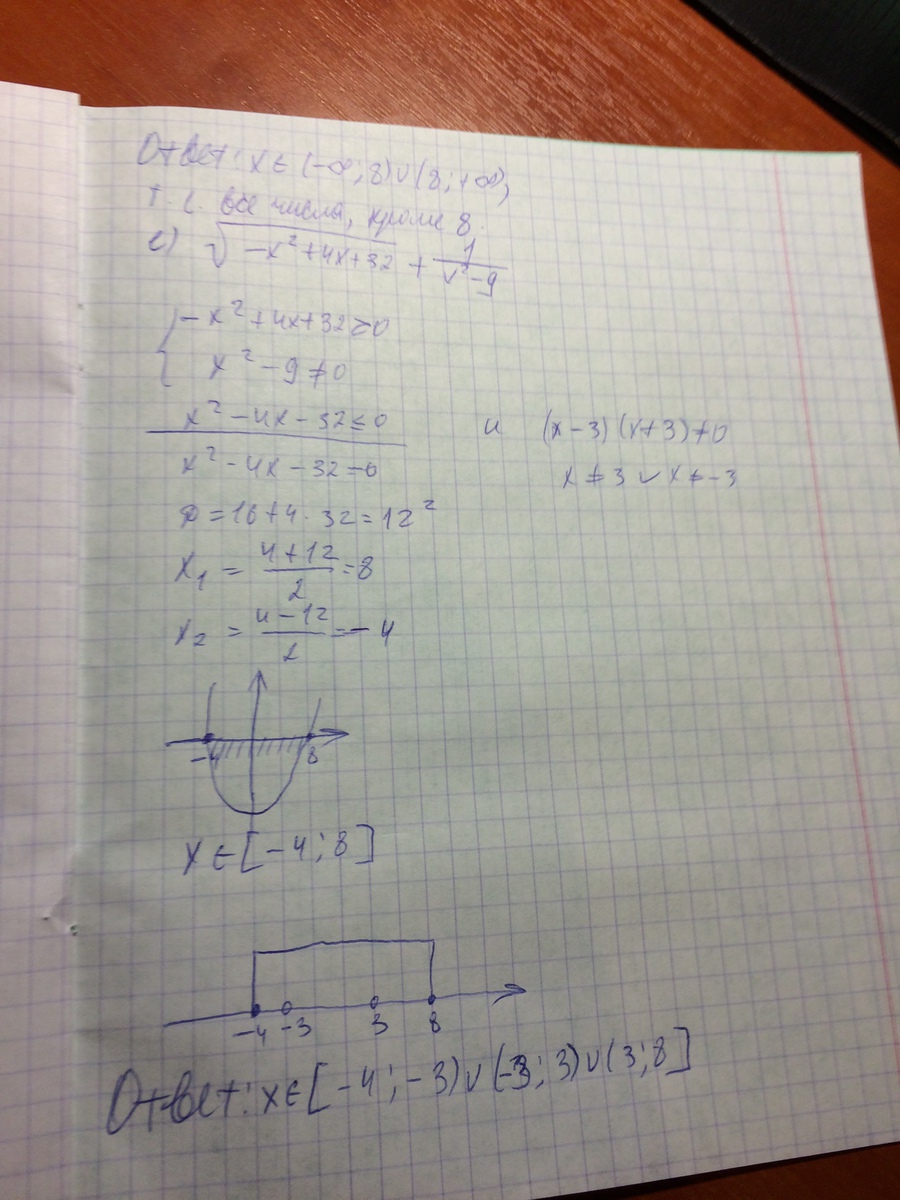 Ответ: x ∈ (-∞; 8) ∪ (8; +∞),
т. е. все числа, кроме 8.
е) √(-x² + 4x + 32) + 1/(x² - 9)
{ -x² + 4x + 32 ≥ 0
x² - 9 ≠ 0
x² - 4x - 32 ≤ 0 и (x - 3)(x + 3) ≠ 0
x² - 4x - 32 = 0 x ≠ 3 ∨ x ≠ -3
D = 16 + 4 · 32 = 12²
x₁ = (4 + 12)/2 = 8
x₂ = (4 - 12)/2 = -4
-4 8
x ∈ [-4; 8]
-4 -3 3 8
Ответ: x ∈ [-4; -3) ∪ (-3; 3) ∪ (3; 8]